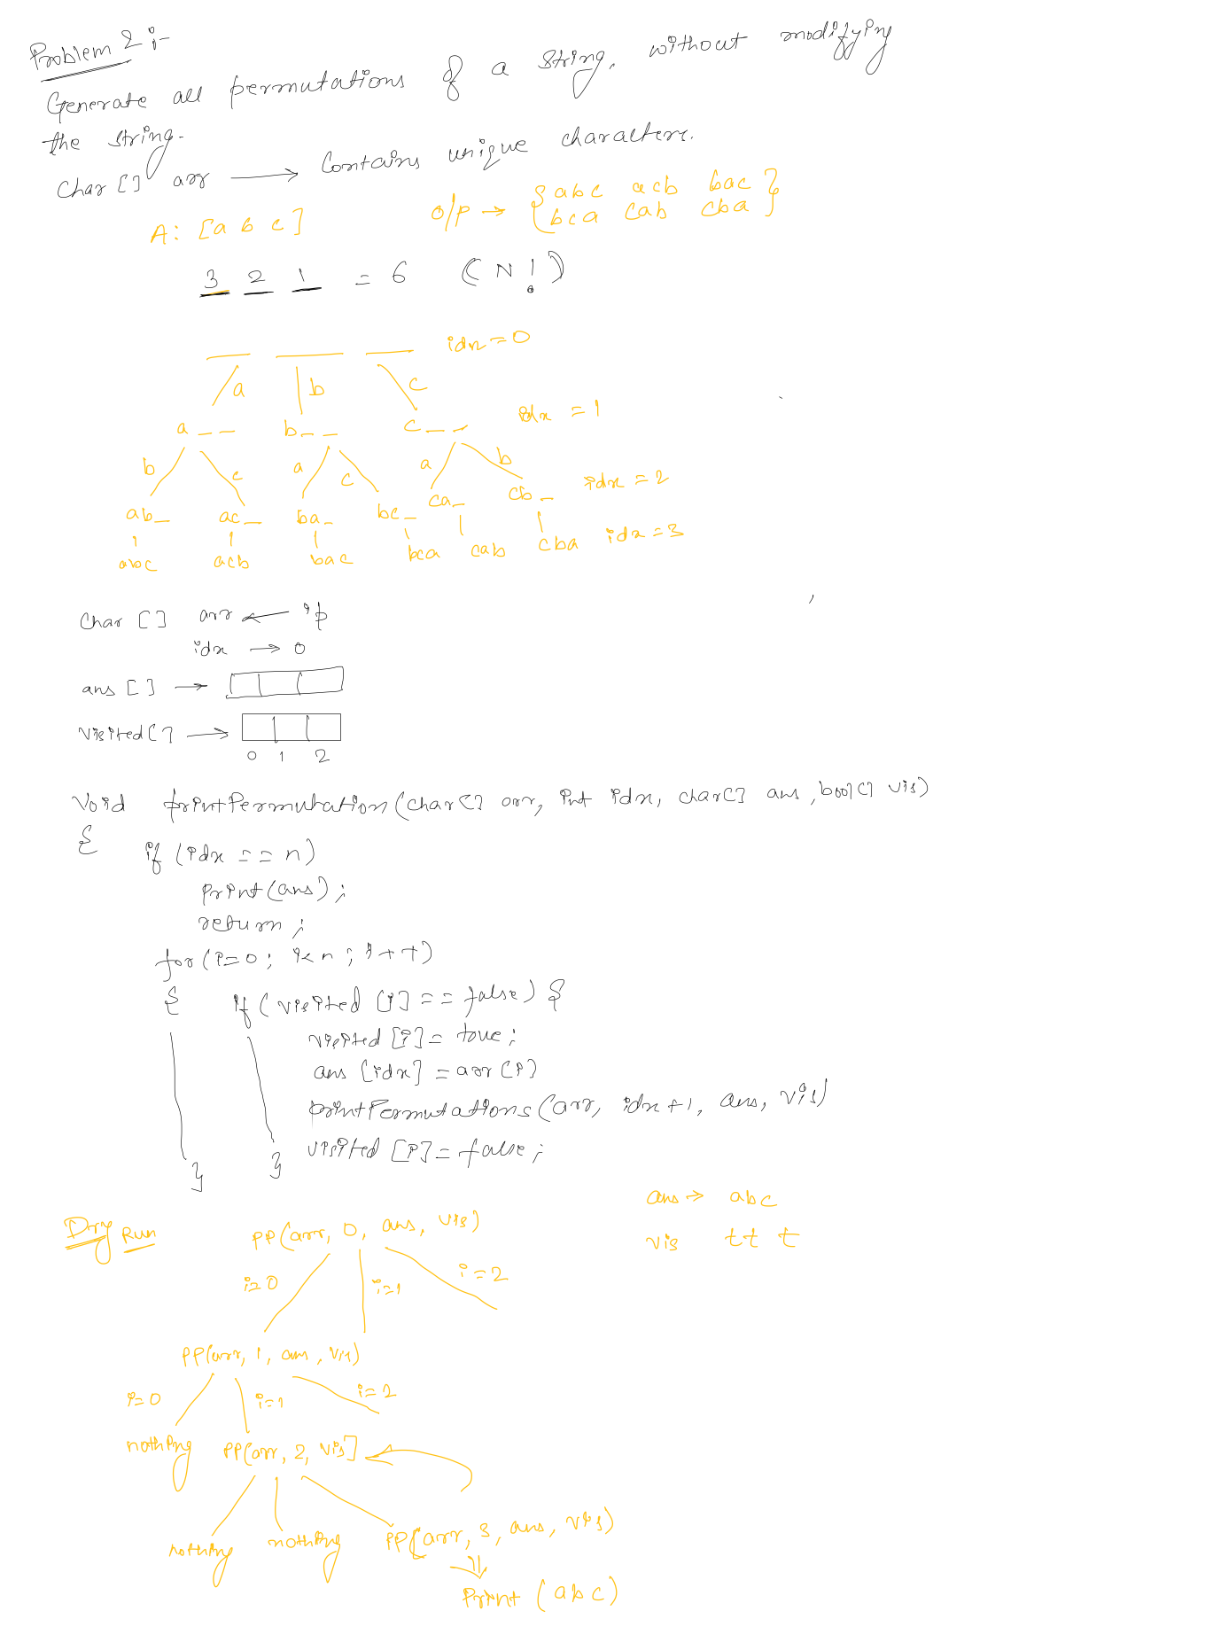 Problem 2 :-
Generate all permutations of a string, without modifying
the string.
Char [] arr → Contains unique characters.
A: [a b c]
o/p → { abc acb bac
bca cab cba }
3 2 1 = 6 (N!)
idx = 0
a b c
a _ _ b _ _ c _ _ idx = 1
b c a c a b
ab_ ac_ ba_ bc_ ca_ cb_ idx = 2
abc acb bac bca cab cba idx = 3
Char [] arr ← i/p
idx → 0
ans [] →
visited [] →
0 1 2
Void printPermutation(char[] arr, int idx, char[] ans, bool[] vis)
{ if (idx == n)
print(ans);
return;
for (i=0; i<n; i++)
{ if (visited [i] == false) {
visited [i] = true;
ans [idx] = arr [i]
printPermutations(arr, idx+1, ans, vis)
visited [i] = false;
} }
Dry Run
ans → abc
vis t t t
PP(arr, 0, ans, vis)
i=0 i=1 i=2
PP(arr, 1, ans, vis)
i=0 i=1 i=2
nothing PP(arr, 2, vis]
nothing nothing PP(arr, 3, ans, vis)
⇓
Print (abc)